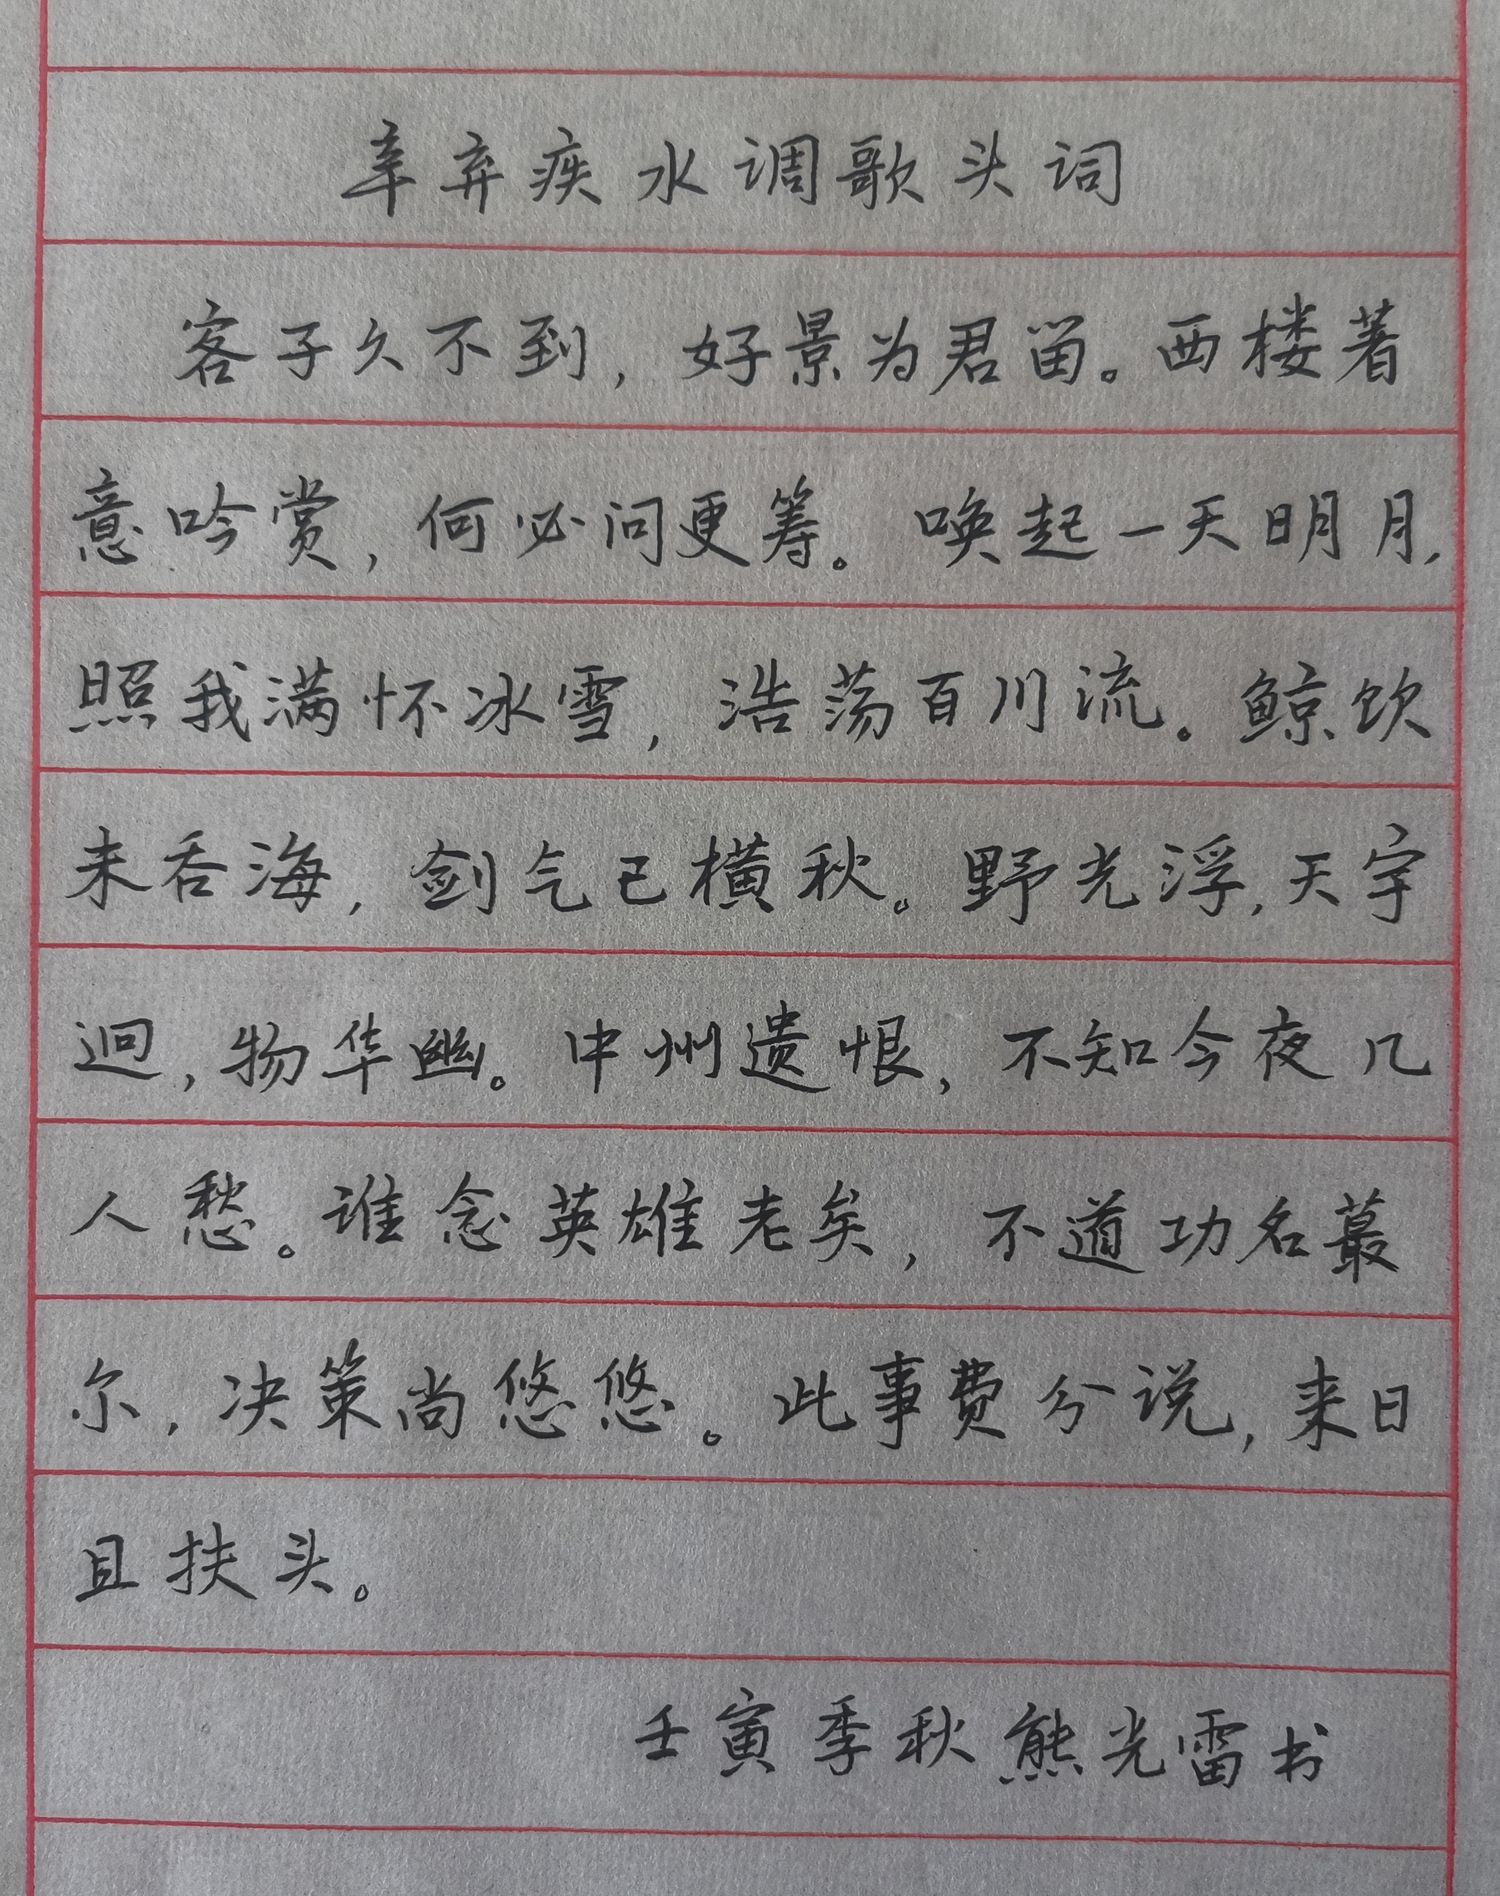 辛弃疾水调歌头词
客子久不到，好景为君留。西楼著
意吟赏，何必问更筹。唤起一天明月，
照我满怀冰雪，浩荡百川流。鲸饮
未吞海，剑气已横秋。野光浮，天宇
迥，物华幽。中州遗恨，不知今夜几
人愁。谁念英雄老矣，不道功名蕞
尔，决策尚悠悠。此事费分说，来日
且扶头。
壬寅季秋熊光雷书